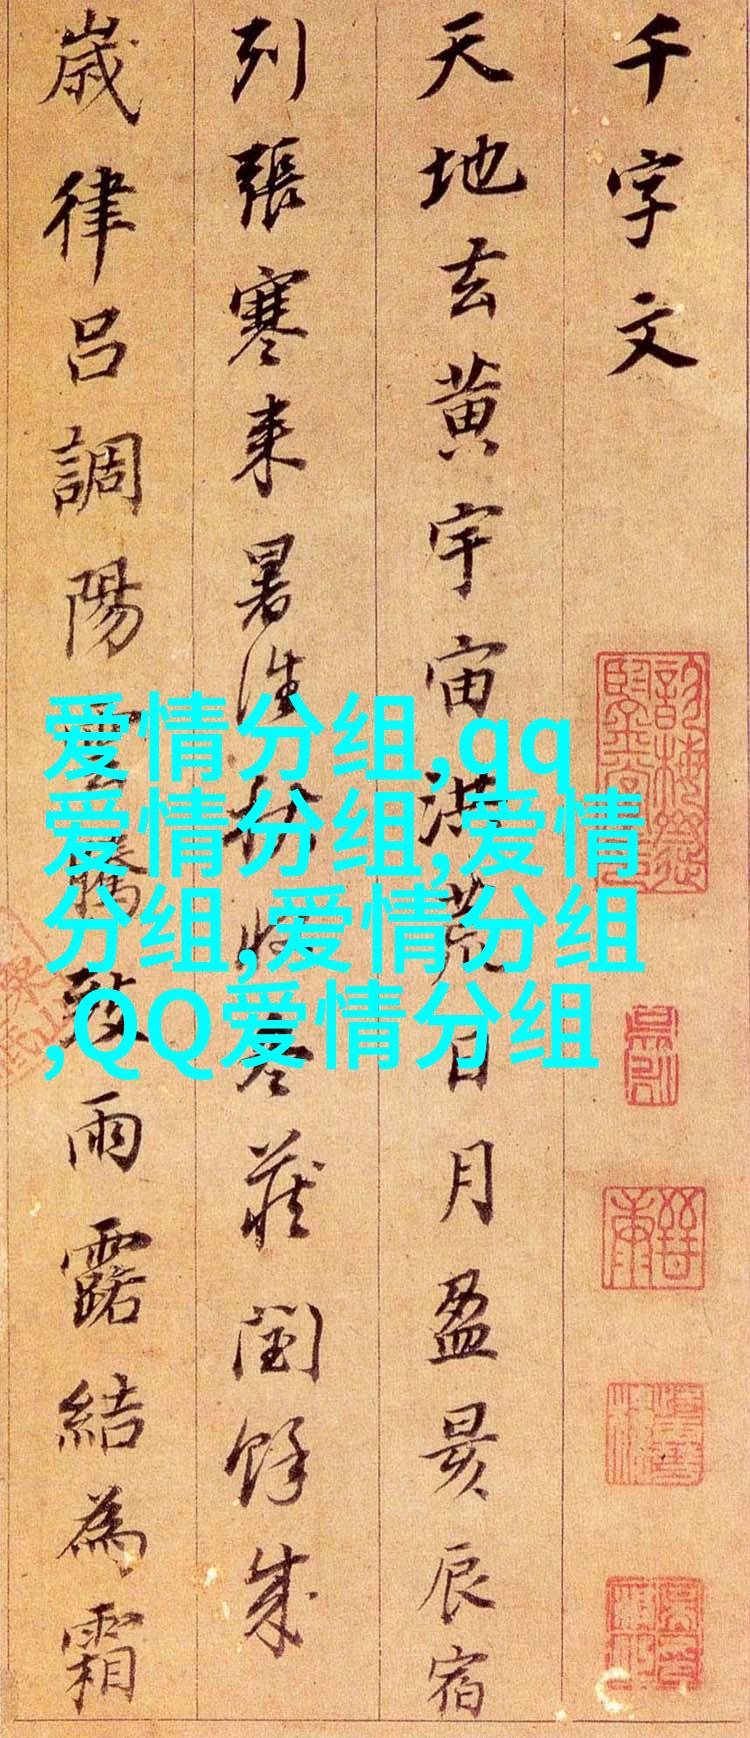 千字文
天地玄黄宇宙洪荒日月盈昃辰宿
列張寒来暑往秋收冬蔵閏餘成
歲律吕調陽雲騰致雨露結為霜
爱情分组,qq
爱情分组,爱情
分组,爱情分组
,QQ爱情分组